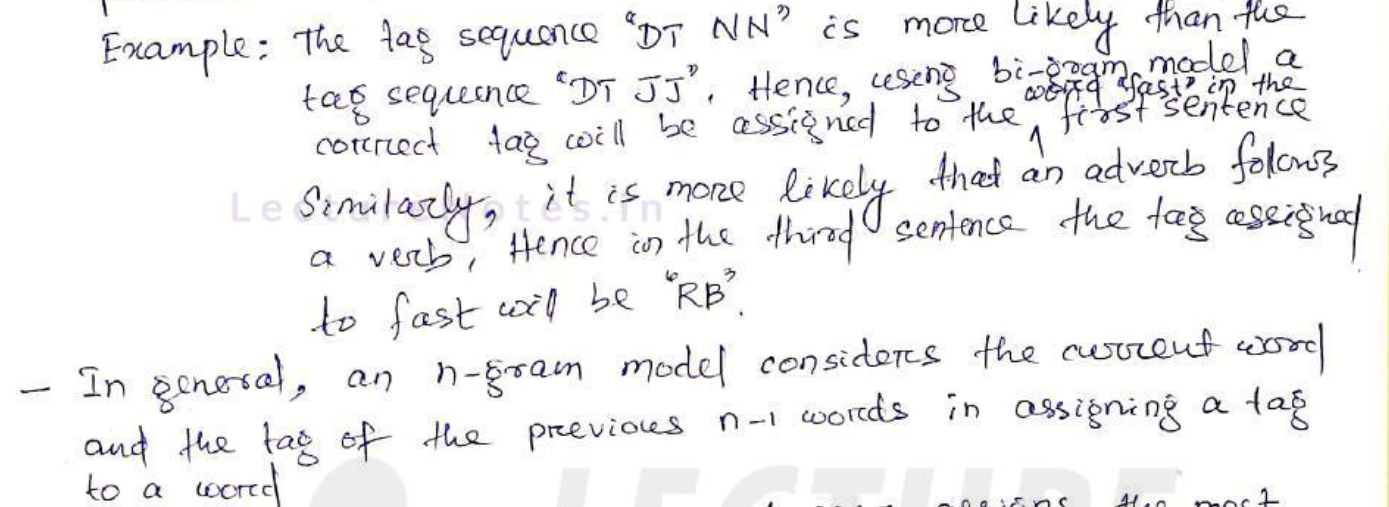 Example: The tag sequence "DT NN" is more likely than the
tag sequence "DT JJ". Hence, using bi-gram model a
word "fast" in the
correct tag will be assigned to the first sentence
Similarly, it is more likely that an adverb follows
a verb, Hence in the third sentence the tag assigned
to fast will be "RB".
- In general, an n-gram model considers the current word
and the tag of the previous n-1 words in assigning a tag
to a word
assigns the most
LECTURE